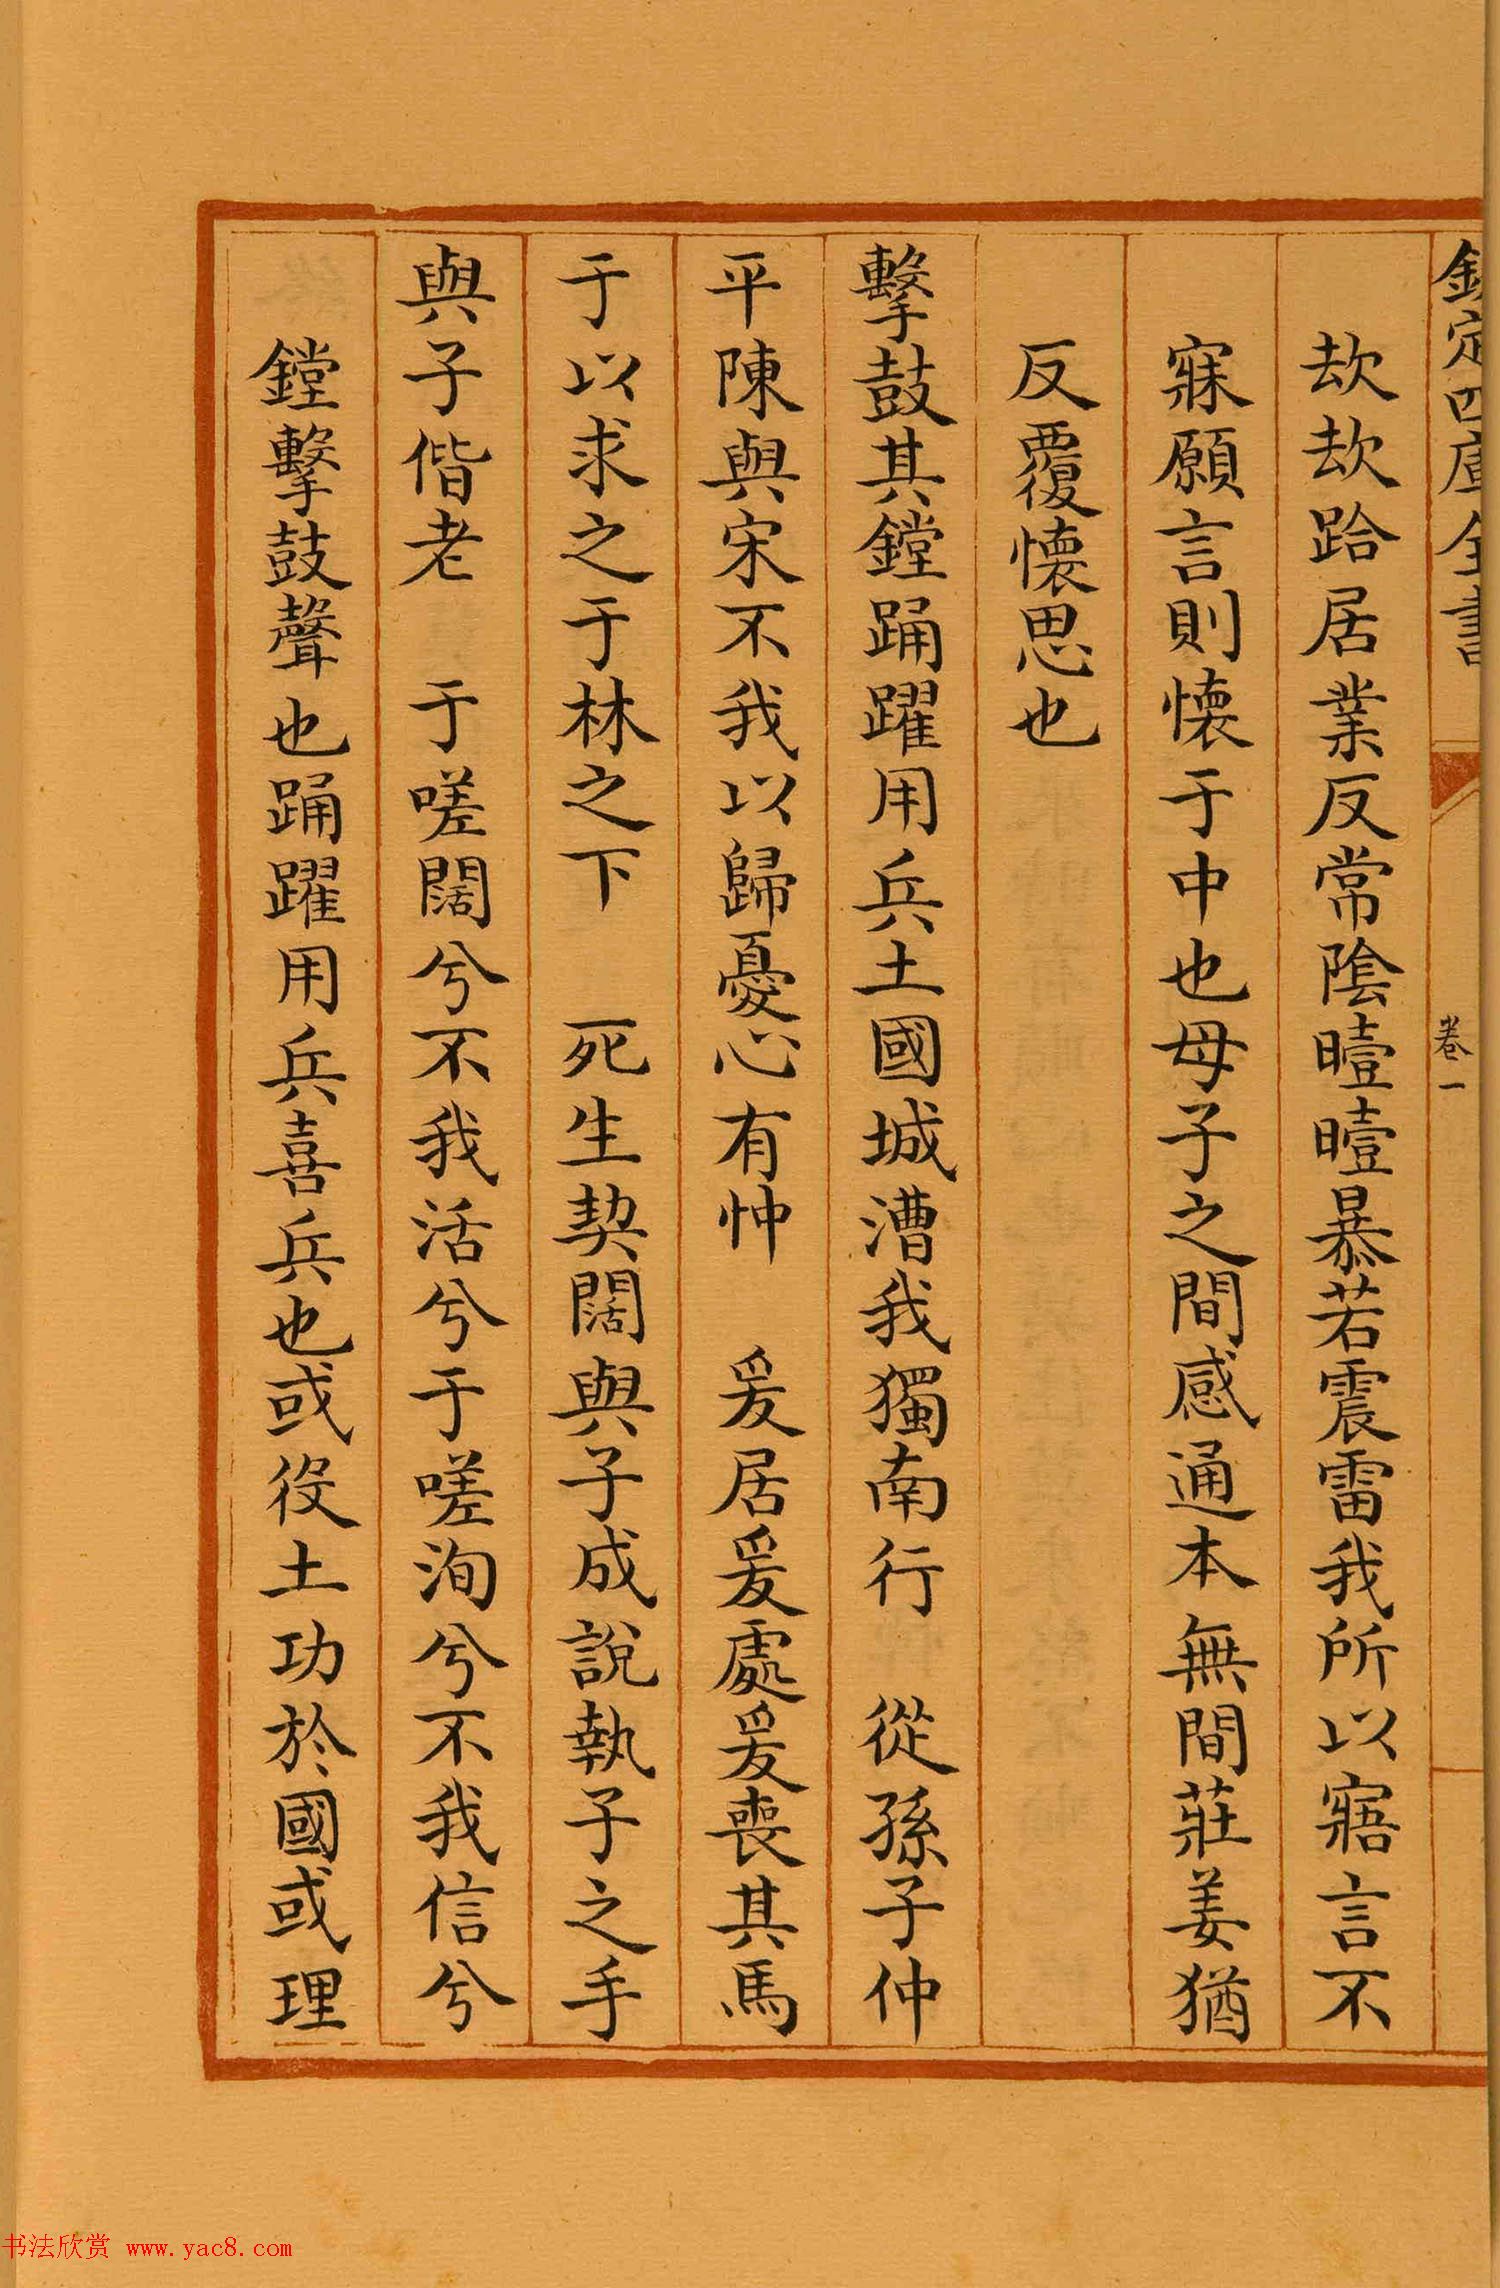 欽定四庫全書
卷一
㰦㰦跲居業反常陰曀曀暴若震雷我所以寤言不
寐願言則懷于中也母子之間感通本無間莊姜猶
反覆懷思也
擊鼓其鏜踊躍用兵土國城漕我獨南行　從孫子仲
平陳與宋不我以歸憂心有忡　爰居爰處爰喪其馬
于以求之于林之下　死生契闊與子成說執子之手
與子偕老　于嗟闊兮不我活兮于嗟洵兮不我信兮
鏜擊鼓聲也踊躍用兵喜兵也或役土功於國或理
书法欣赏 www.yac8.com